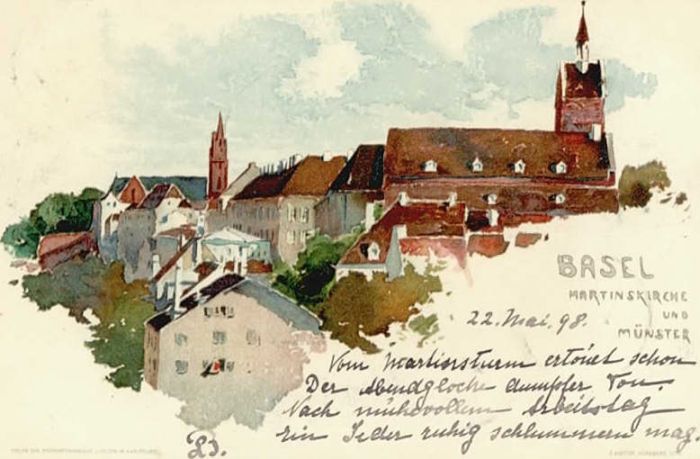 BASEL
MARTINSKIRCHE
UND
MÜNSTER
22. Mai. 98.
Vom Martinsturm ertönet schon
Der Abendglocke dumpfer Ton.
Nach mühevollem Arbeitstag
Ein Jeder ruhig schlummern mag.